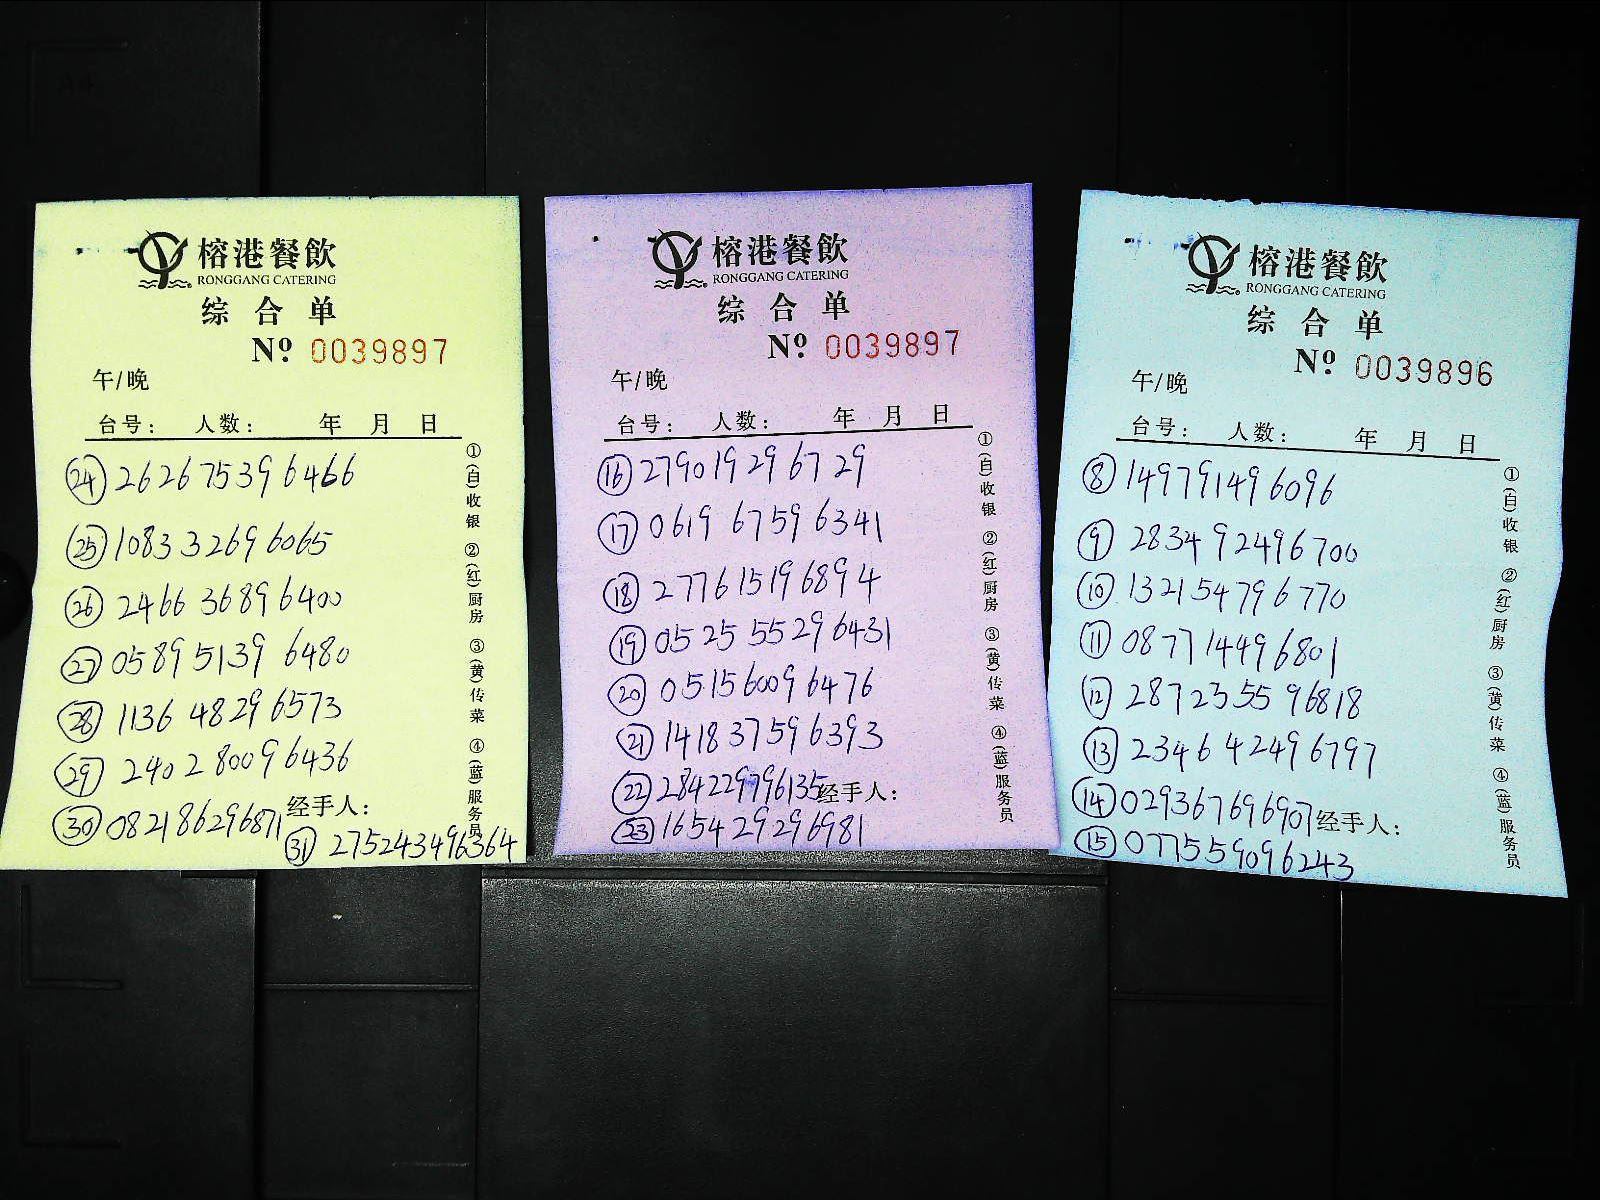 榕港餐飲
RONGGANG CATERING
综合单
Nº 0039897
午/晚
台号: 人数: 年 月 日
㉔ 262675396466
㉕ 108332696065
㉖ 246636896400
㉗ 058951396480
㉘ 113648296573
㉙ 240280096436
㉚ 082186296871 经手人:
㉛ 275243496364
①(白)收银 ②(红)厨房 ③(黄)传菜 ④(蓝)服务员
榕港餐飲
RONGGANG CATERING
综合单
Nº 0039897
午/晚
台号: 人数: 年 月 日
⑯ 279019296729
⑰ 061967596341
⑱ 277615196894
⑲ 052555296431
⑳ 051560096476
㉑ 141837596393
㉒ 284229796135 经手人:
㉓ 165429296981
①(白)收银 ②(红)厨房 ③(黄)传菜 ④(蓝)服务员
榕港餐飲
RONGGANG CATERING
综合单
Nº 0039896
午/晚
台号: 人数: 年 月 日
⑧ 149791496096
⑨ 283492496700
⑩ 132154796770
⑪ 087714496801
⑫ 287235596818
⑬ 234642496797
⑭ 029367696907 经手人:
⑮ 077559096243
①(白)收银 ②(红)厨房 ③(黄)传菜 ④(蓝)服务员